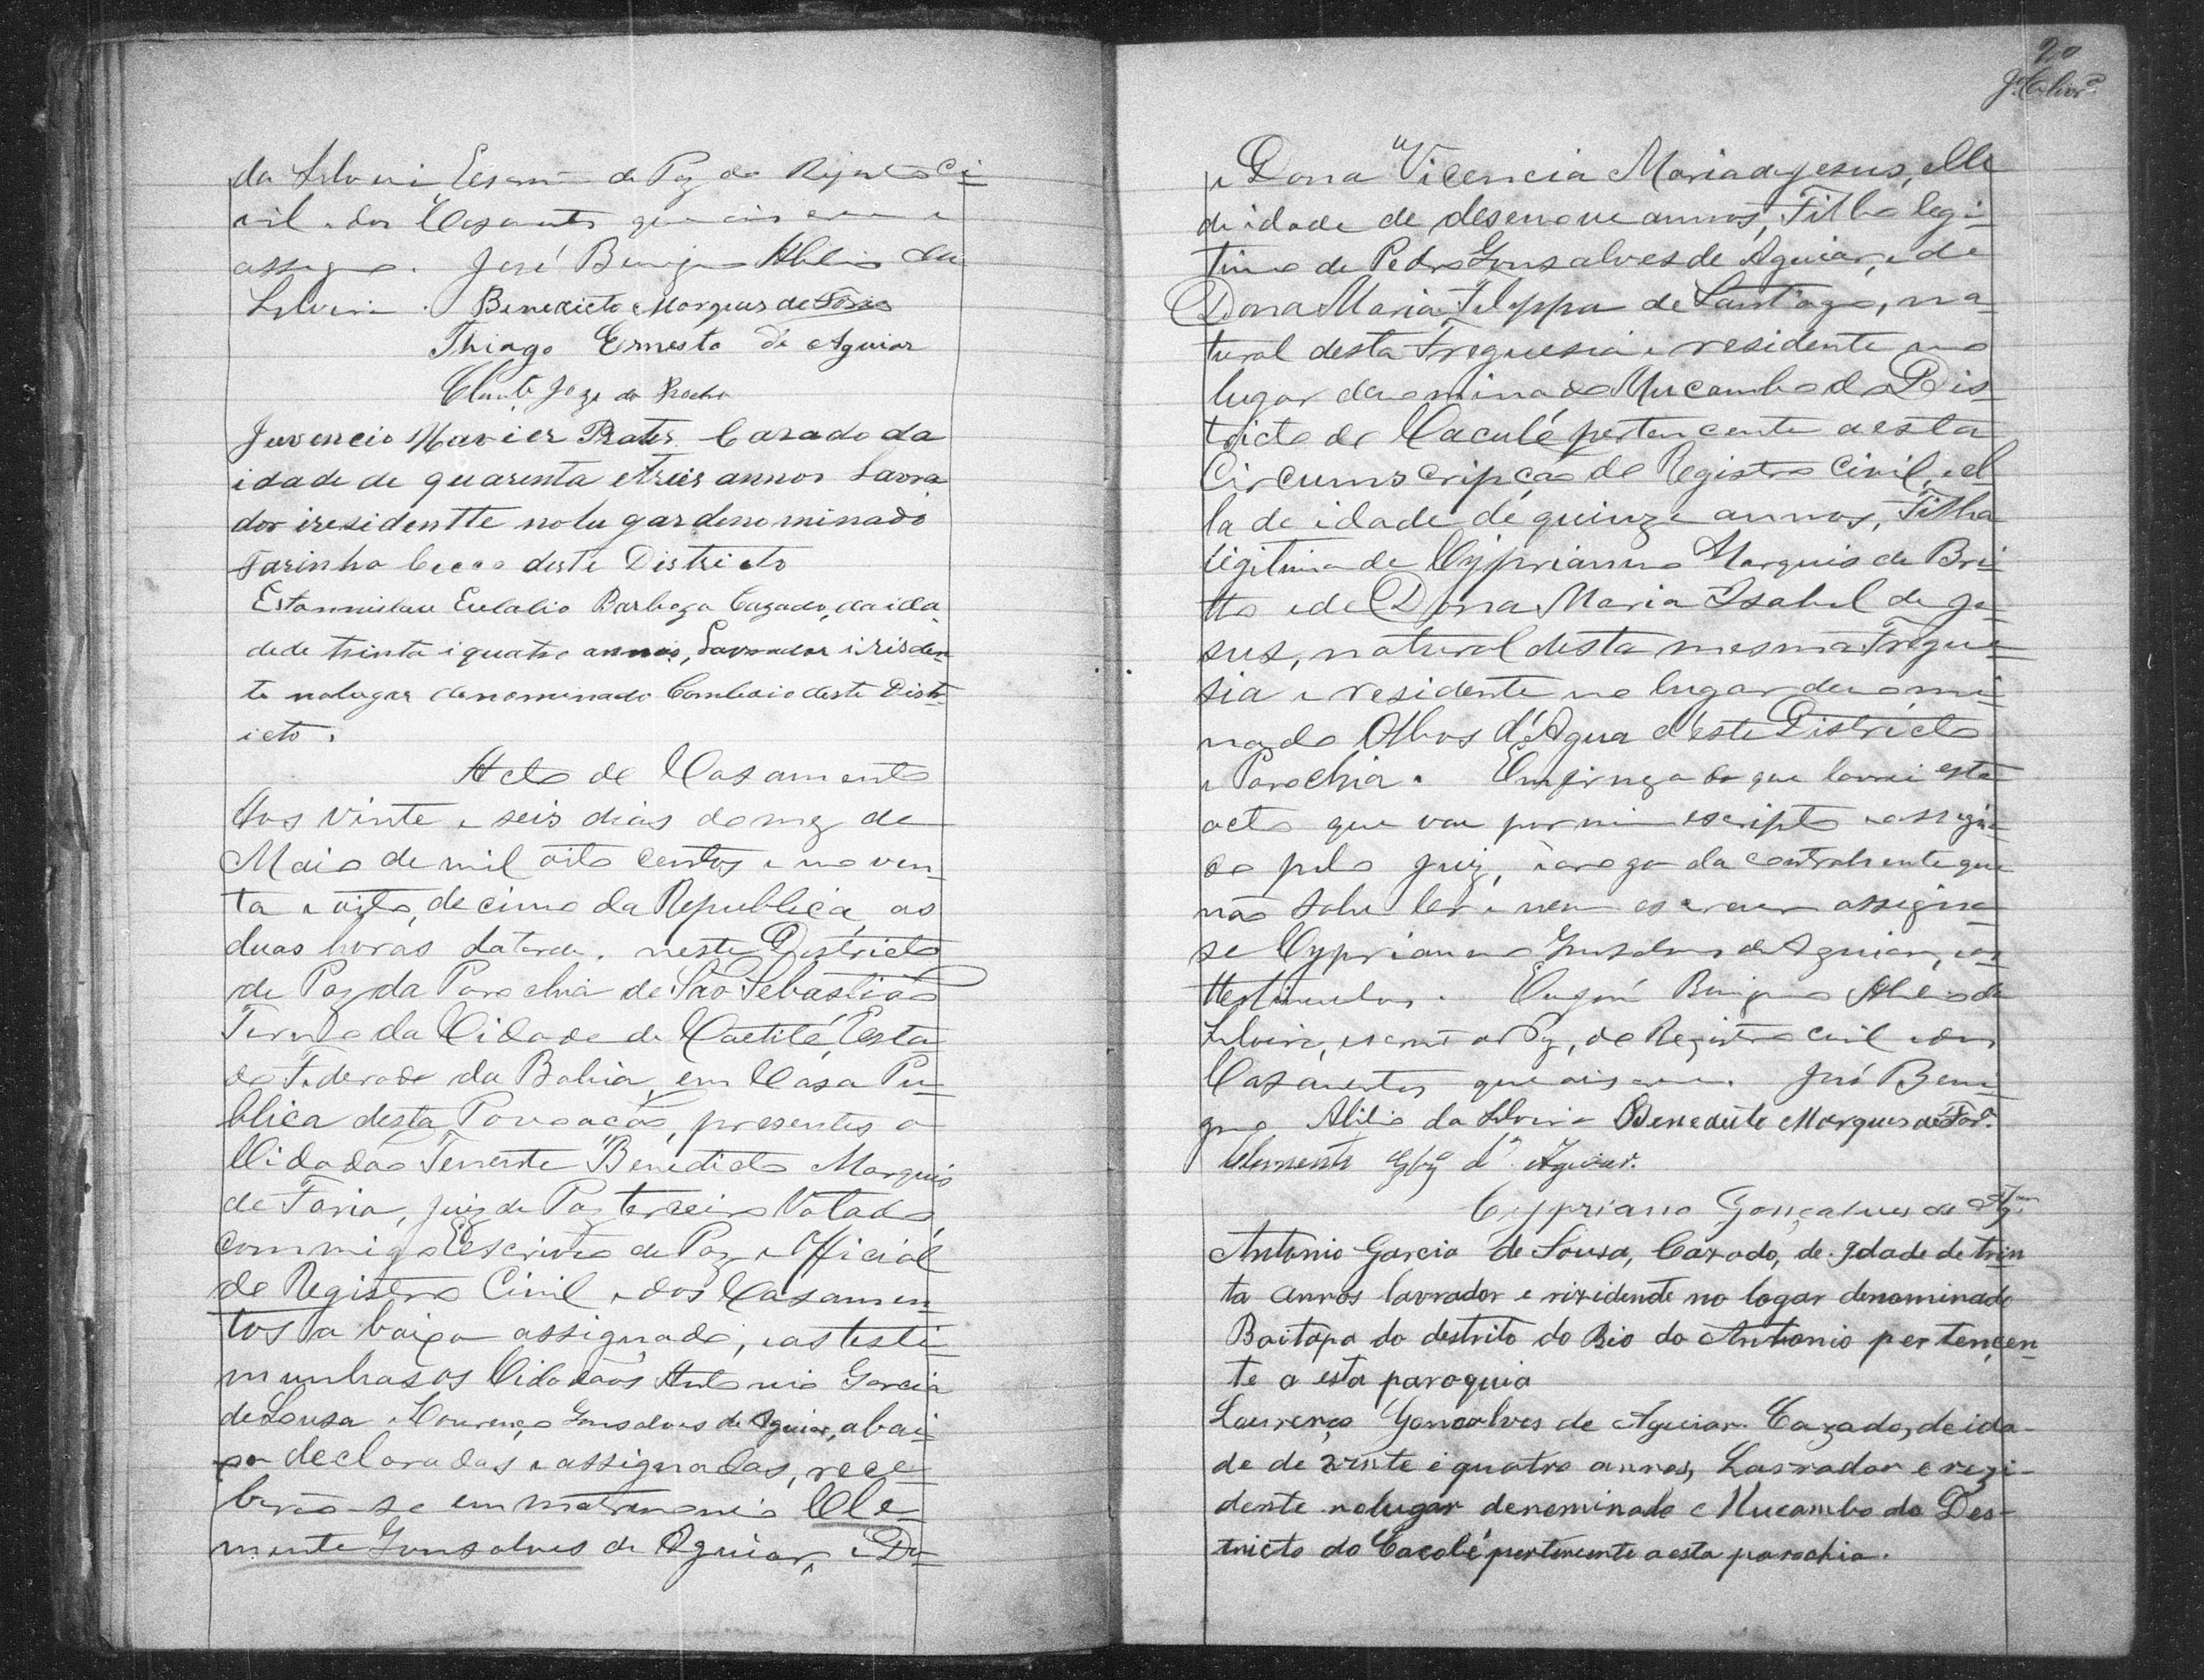 da Silveira Escrivão de Paz do Registro Ci-
vil e dos Casamentos que assigno e
assigno. José Benigno Abilio da
Silveira. Benedicto Marques de Faria
Thiago Ernesto de Aguiar
Jose da Rocha
Juvencio Xavier Prates Cazado da
idade de quarenta etreis annos Lavra
dor iresidentte nolugardenominado
Farinha Secca deste Districto
Estannislau Eulalio Barboza Cazado, daida
dede trinta i quatro annos, Lavrador i risden
te nolugar denominado deste Distr-
icto.
Acto de Casamento
Aos vinte e seis dias do mez de
Maio de mil oito centos e noven-
ta e oito, decimo da Republica, as
duas horas datarde. neste Districto
de Paz da Parochia de São Sebastião
Termo da Cidade de Caetité, Esta-
do Federado da Bahia, em Casa Pu-
blica desta Povoação, presentes o
Cidadão Tenente Benedicto Marques
de Faria, juiz de Paz terceiro Votado,
commigo Escrivão de Paz e Official
de Registro Civil e dos Casamen-
tos a baixo assignado, e as teste-
munhas os Cidadãos Antonio Garcia
de Sousa e Lourenço Gonsalves de Aguiar, abai-
xo declaradas e assignadas, rece-
berão-se em matrimonio Cle-
mente Gonsalves de Aguiar, e Do-
20
e Dona Vicencia Maria de Jesus, elle
de idade de desenove annos, Filho legi-
timo de Pedro Gonsalves de Aguiar, e de
Dona Maria Felippa de Sant'ago, na-
tural desta Freguesia e residente no
lugar denominado Mucambo do Dis-
tricto de Caculé pertencente a esta
Circumscripção de Registro Civil, el-
la de idade de quinze annos, Filha
legitima de Cyprianno Marques de Bri-
tto e de Dona Maria Isabel de Je-
sus, natural desta mesma Fregue-
sia e residente no lugar denomi-
nado Olhos d'Agua d'este Districto
e Parochia. Em firmeza do que lavrei este
acto que vae por mim escripto e assigna-
do pelo juiz, à rogo da contrahente que
não sabe ler e nem escrever assigna-
se Cyprianno Gonsalves de Aguiar, e as
ttestimunhas. Eu José Benigno Abilio da
Silveira, escrivão de Paz, do Registro Civil e dos
Casamentos que escrevi. José Beni-
gno Abilio da Silveira Benedicto Marques de Far.ª
Clemente Glz d' Aguiar.
Cypriano Gonçalves de Ag.ar
Antonio Garcia de Sousa, Cazado, de Idade de trin
ta annos lavrador e rizidente no logar denominado
Baitapa do destrito do Rio do Antonio pertencen-
te a esta paroquia
Laurenço Gonçalves de Aguiar. Cazado, de ida-
de de vinte e quatro annos, Lavrador e rezi-
dente nolugar denominado Mucambo do Des-
tricto do Cacolé pertencente a esta parochia.